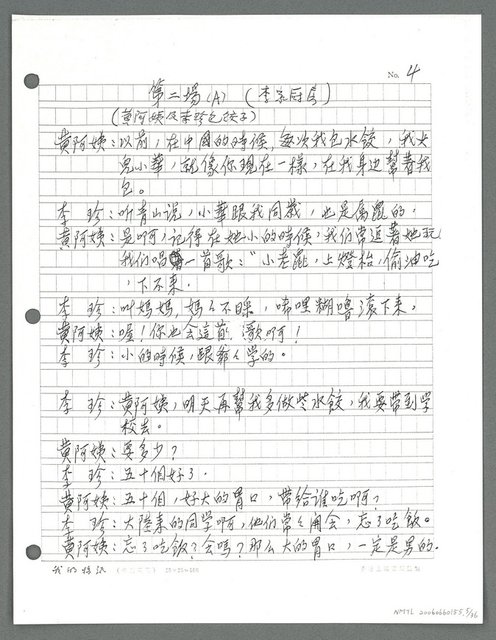 No. 4
第二場(A) (李家厨房)
(黄阿姨及李珍包饺子)
黄阿姨：以前，在中國的時候，每次我包水餃，我大
兒小華，就像你現在一樣，在我身边幫着我
包。
李　珍：听青山说，小華跟我同歲，也是属鼠的。
黄阿姨：是啊，记得在她小的時候，我们常逗着她玩
我们唱一首歌："小老鼠，上燈枱，偷油吃
，下不来，
李　珍：叫媽媽，媽々不睬，唏哩糊嚕滾下来。
黄阿姨：喔！你也会這首歌啊！
李　珍：小的時候，跟爺々学的。
李　珍：黄阿姨，明天再幫我多做些水餃，我要带到学
校去。
黄阿姨：要多少？
李　珍：五十個好了。
黄阿姨：五十個，好大的胃口，带给谁吃啊？
李　珍：大陸来的同学啊，他们常々開会，忘了吃飯。
黄阿姨：忘了吃飯？会嗎？那么大的胃口，一定是男的。
NMTL 20060660155, 5/36